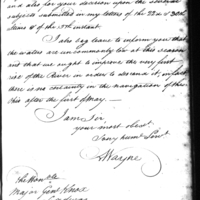 and also for your decision upon the several
subjects submitted in my letters of the 22d & 30th
June & of the 5th instant.
I also beg leave to inform you that
the waters are uncommonly low at this season
and that we ought to improve the very first
rise of the River in order to descend it, in fact
there is no certainty in the navigation of the
this after the first of May. —
I am Sir
your most obedt.
& very humle Servt
A Wayne
The Honble
Major Genl Knox